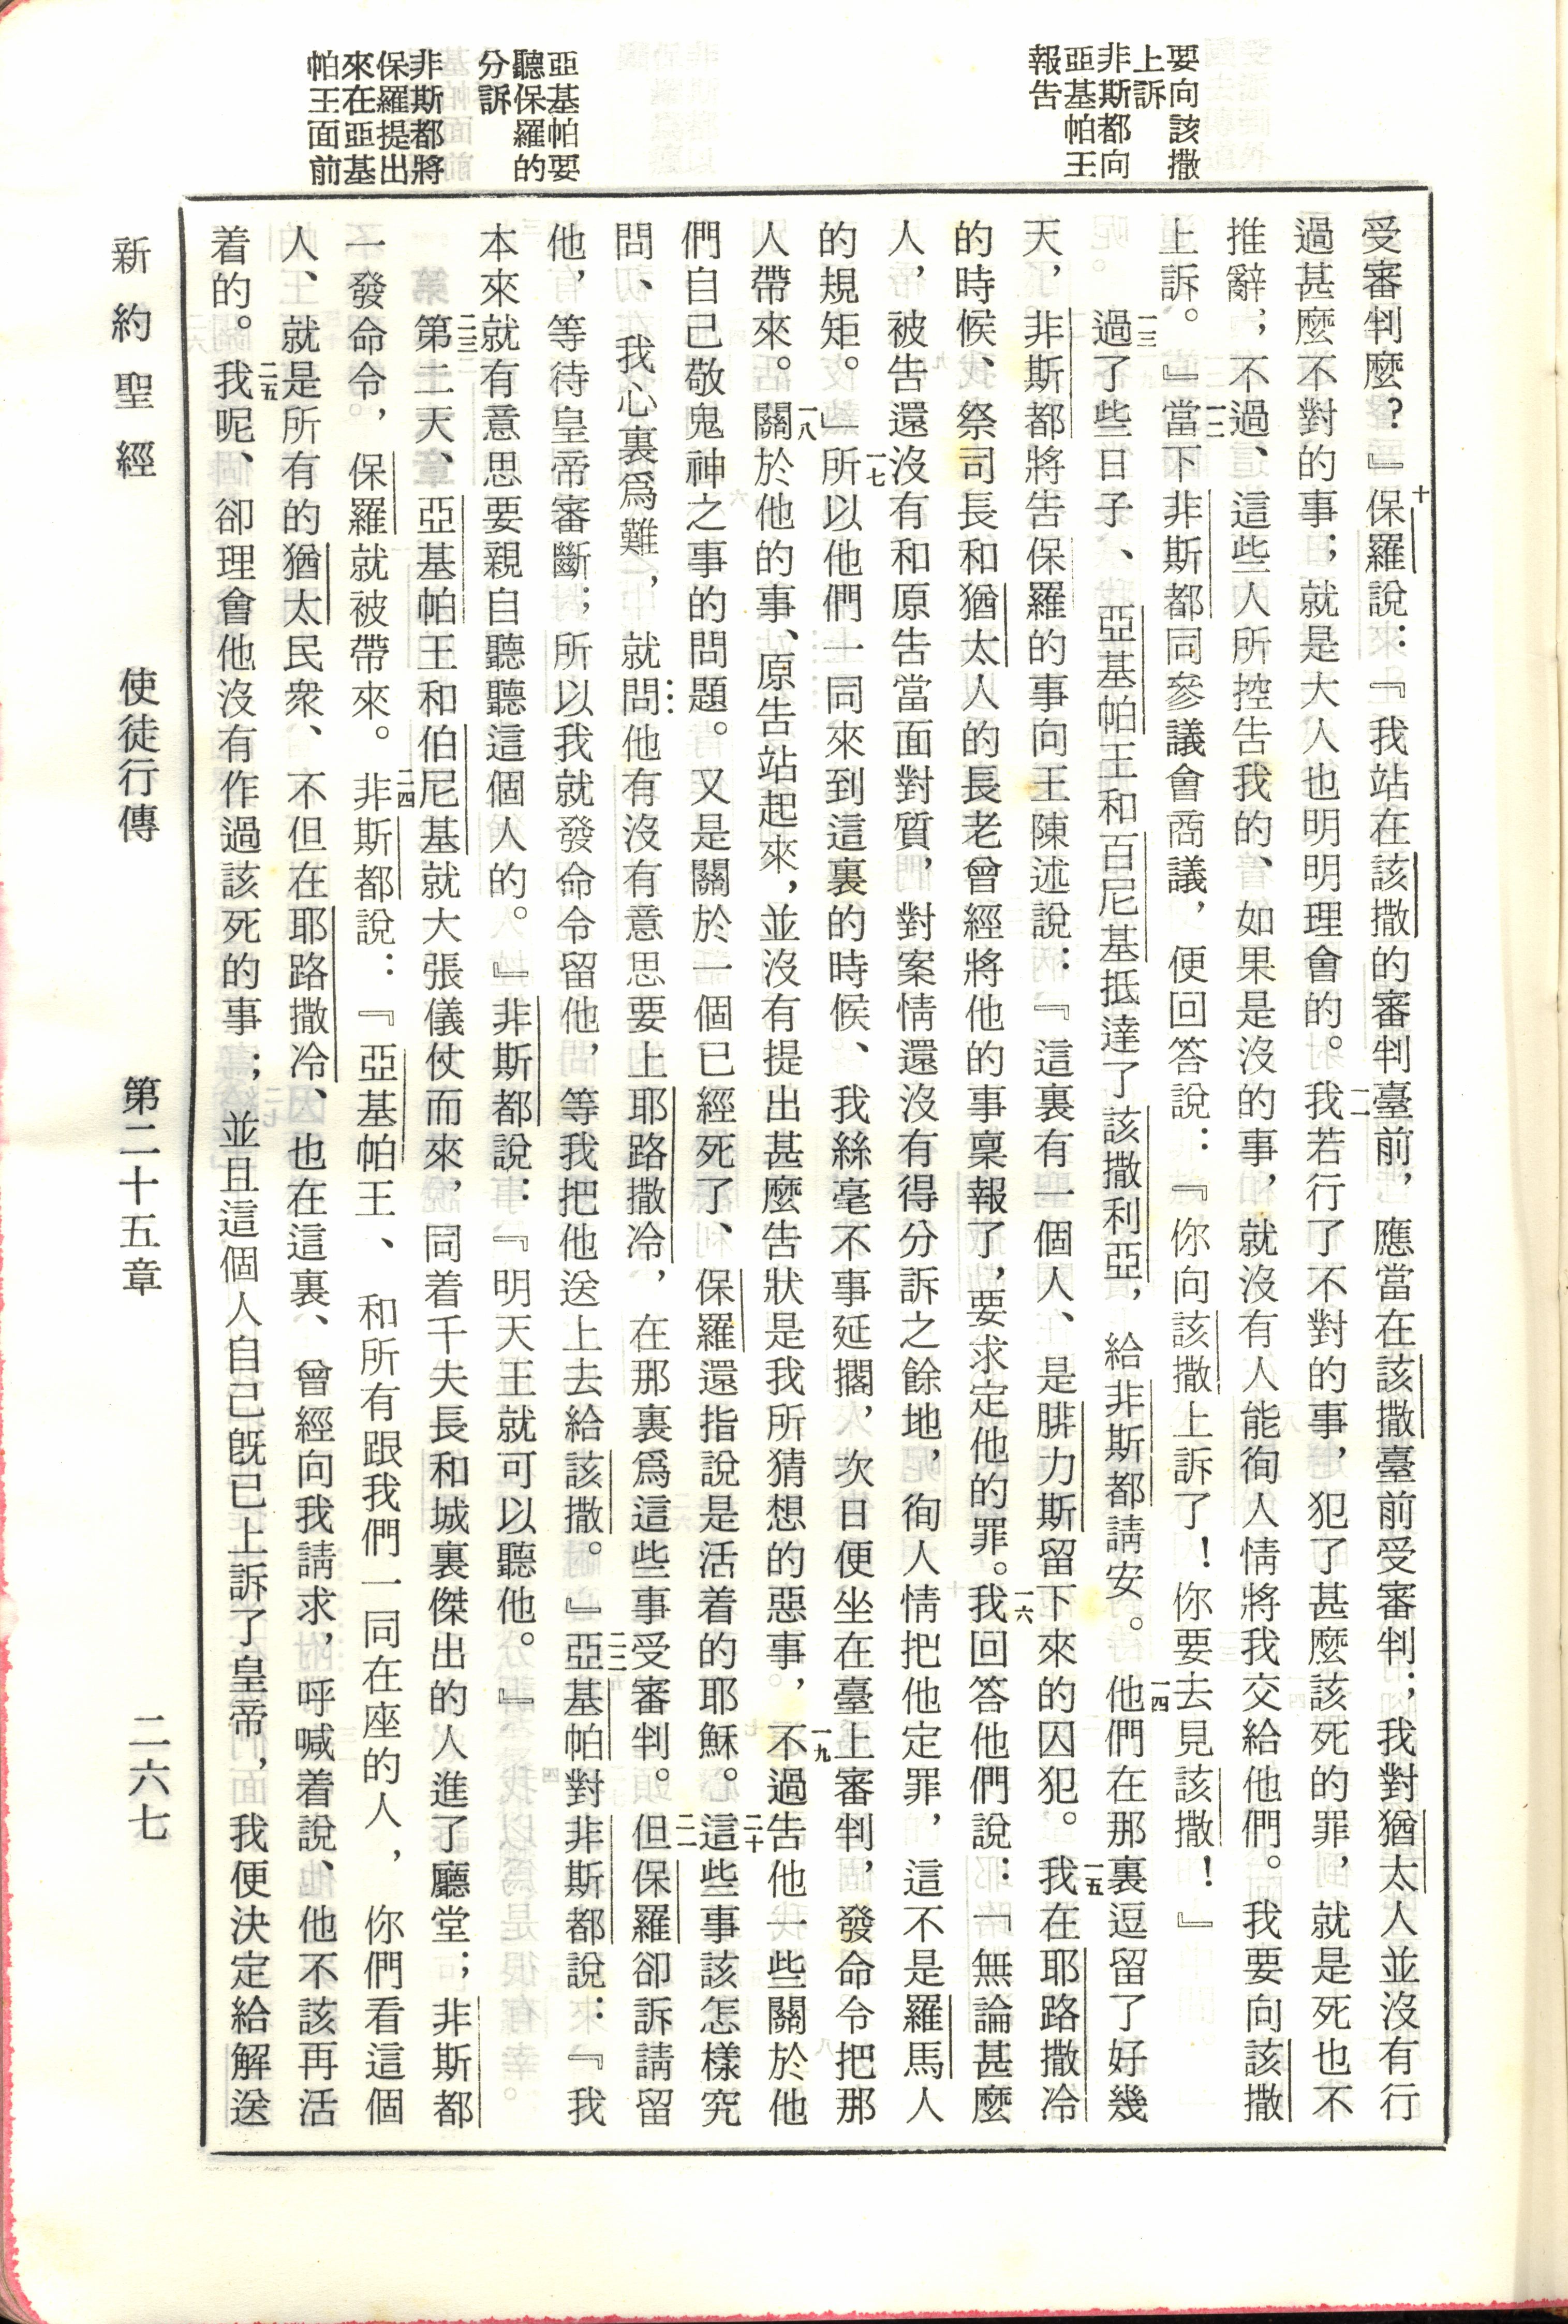 要向該撒
上訴
非斯都向
亞基帕王
報告
亞基帕要
聽保羅的
分訴
非斯都將
保羅提出
來在亞基
帕王面前
受審判麼?』十保羅說:『我站在該撒的審判臺前,應當在該撒臺前受審判;我對猶太人並沒有行
過甚麼不對的事;就是大人也明明理會的。一一我若行了不對的事,犯了甚麼該死的罪,就是死也不
推辭;不過、這些人所控告我的、如果是沒的事,就沒有人能徇人情將我交給他們。我要向該撒
上訴。』一二當下非斯都同參議會商議,便回答說:『你向該撒上訴了!你要去見該撒!』
一三過了些日子、亞基帕王和百尼基抵達了該撒利亞,給非斯都請安。一四他們在那裏逗留了好幾
天,非斯都將告保羅的事向王陳述說:『這裏有一個人、是腓力斯留下來的囚犯。一五我在耶路撒冷
的時候、祭司長和猶太人的長老曾經將他的事稟報了,要求定他的罪。一六我回答他們說:「無論甚麼
人,被告還沒有和原告當面對質,對案情還沒有得分訴之餘地,徇人情把他定罪,這不是羅馬人
的規矩。」一七所以他們一同來到這裏的時候、我絲毫不事延擱,次日便坐在臺上審判,發命令把那
人帶來。一八關於他的事、原告站起來,並沒有提出甚麼告狀是我所猜想的惡事,一九不過告他一些關於他
們自己敬鬼神之事的問題。又是關於一個已經死了、保羅還指說是活着的耶穌。二十這些事該怎樣究
問、我心裏爲難,就問他有沒有意思要上耶路撒冷,在那裏爲這些事受審判。二一但保羅卻訴請留
他,等待皇帝審斷;所以我就發命令留他,等我把他送上去給該撒。』二二亞基帕對非斯都說:『我
本來就有意思要親自聽聽這個人的。』非斯都說:『明天王就可以聽他。』
二三第二天、亞基帕王和伯尼基就大張儀仗而來,同着千夫長和城裏傑出的人進了廳堂;非斯都
一發命令,保羅就被帶來。二四非斯都說:『亞基帕王、和所有跟我們一同在座的人,你們看這個
人、就是所有的猶太民衆、不但在耶路撒冷、也在這裏、曾經向我請求,呼喊着說、他不該再活
着的。二五我呢、卻理會他沒有作過該死的事;並且這個人自己旣已上訴了皇帝,我便決定給解送
新約聖經 使徒行傳 第二十五章 二六七